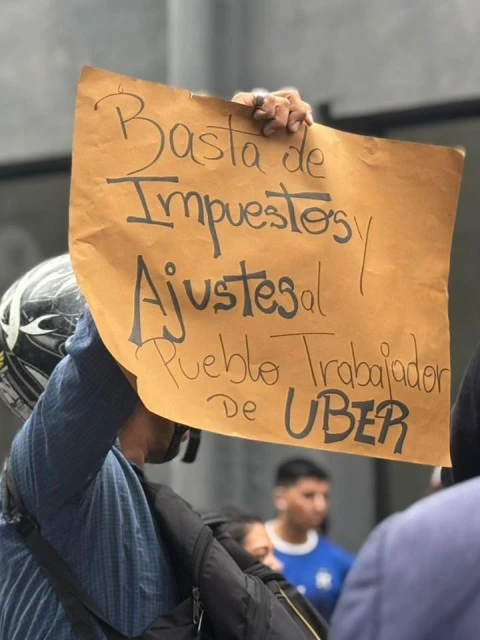 Basta de
Impuestos y
Ajustes al
Pueblo Trabajador
De UBER